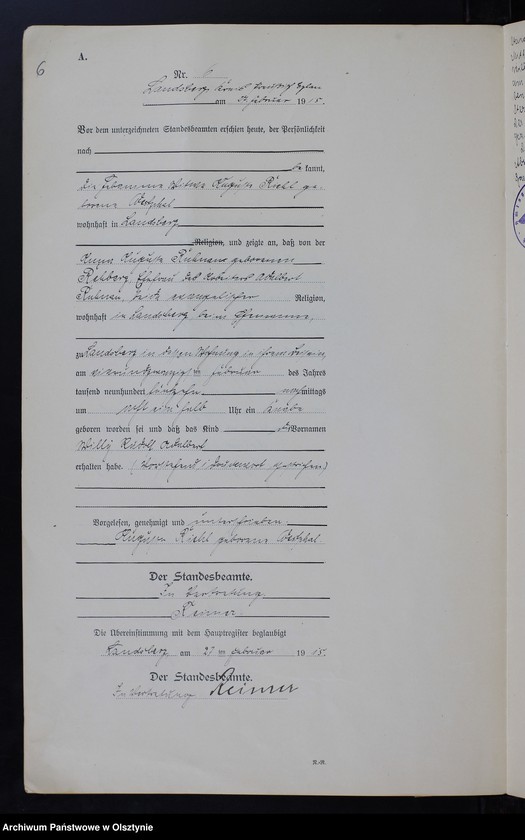 6
A.
Nr. 6
Landsberg Kreis Preußisch Eylau
am Februar 1915.
Vor dem unterzeichneten Standesbeamten erschien heute, der Persönlichkeit
nach
be kannt,
die Hebamme Witwe Auguste Kiehl ge-
borene Westphal
wohnhaft in Landsberg
Religion, und zeigte an, daß von der
Auguste geborenen
Rehberg Ehefrau des Arbeiters Adelbert
beide evangelischer Religion,
wohnhaft in Landsberg beim Ehemanne,
zu Landsberg in dessen Wohnung in ihrem Beisein,
am vierundzwanzigsten Februar des Jahres
tausend neunhundert fünfzehn nachmittags
um acht ein halb Uhr ein Knabe
geboren worden sei und daß das Kind die Vornamen
Willy Rudolf Adelbert
erhalten habe. (Vorstehend Druckwort gestrichen)
Vorgelesen, genehmigt und unterschrieben
Auguste Kiehl geborene Westphal
Der Standesbeamte.
In Vertretung
Reimer
Die Übereinstimmung mit dem Hauptregister beglaubigt
Landsberg am Februar 1915.
Der Standesbeamte.
In Vertretung Reimer
R.-R.
Archiwum Państwowe w Olsztynie